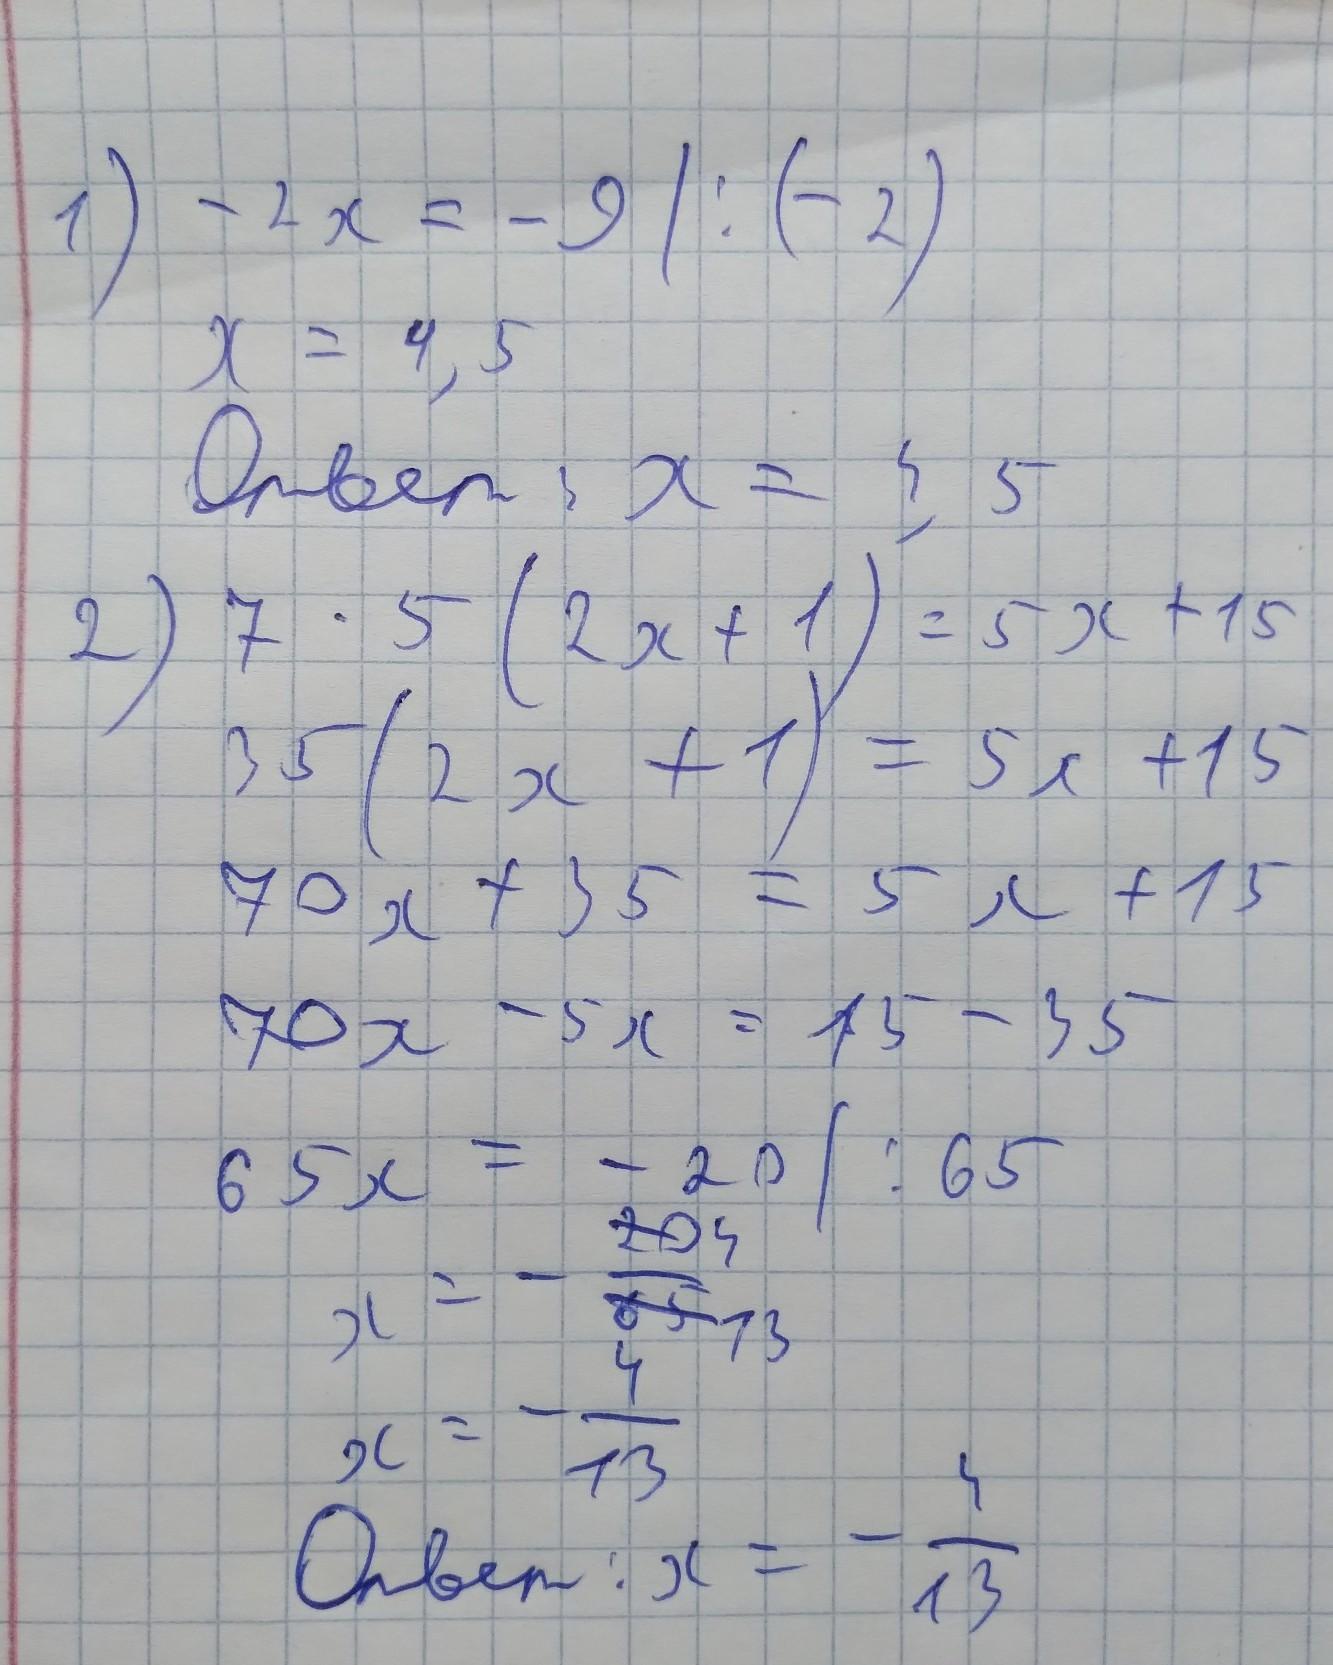 1) -2x = -9 | : (-2)
x = 4,5
Ответ: x = 4,5
2) 7 · 5 (2x + 1) = 5x + 15
35 (2x + 1) = 5x + 15
70x + 35 = 5x + 15
70x - 5x = 15 - 35
65x = -20 | : 65
x = - 20 4 / 65 13
x = - 4/13
Ответ: x = - 4/13